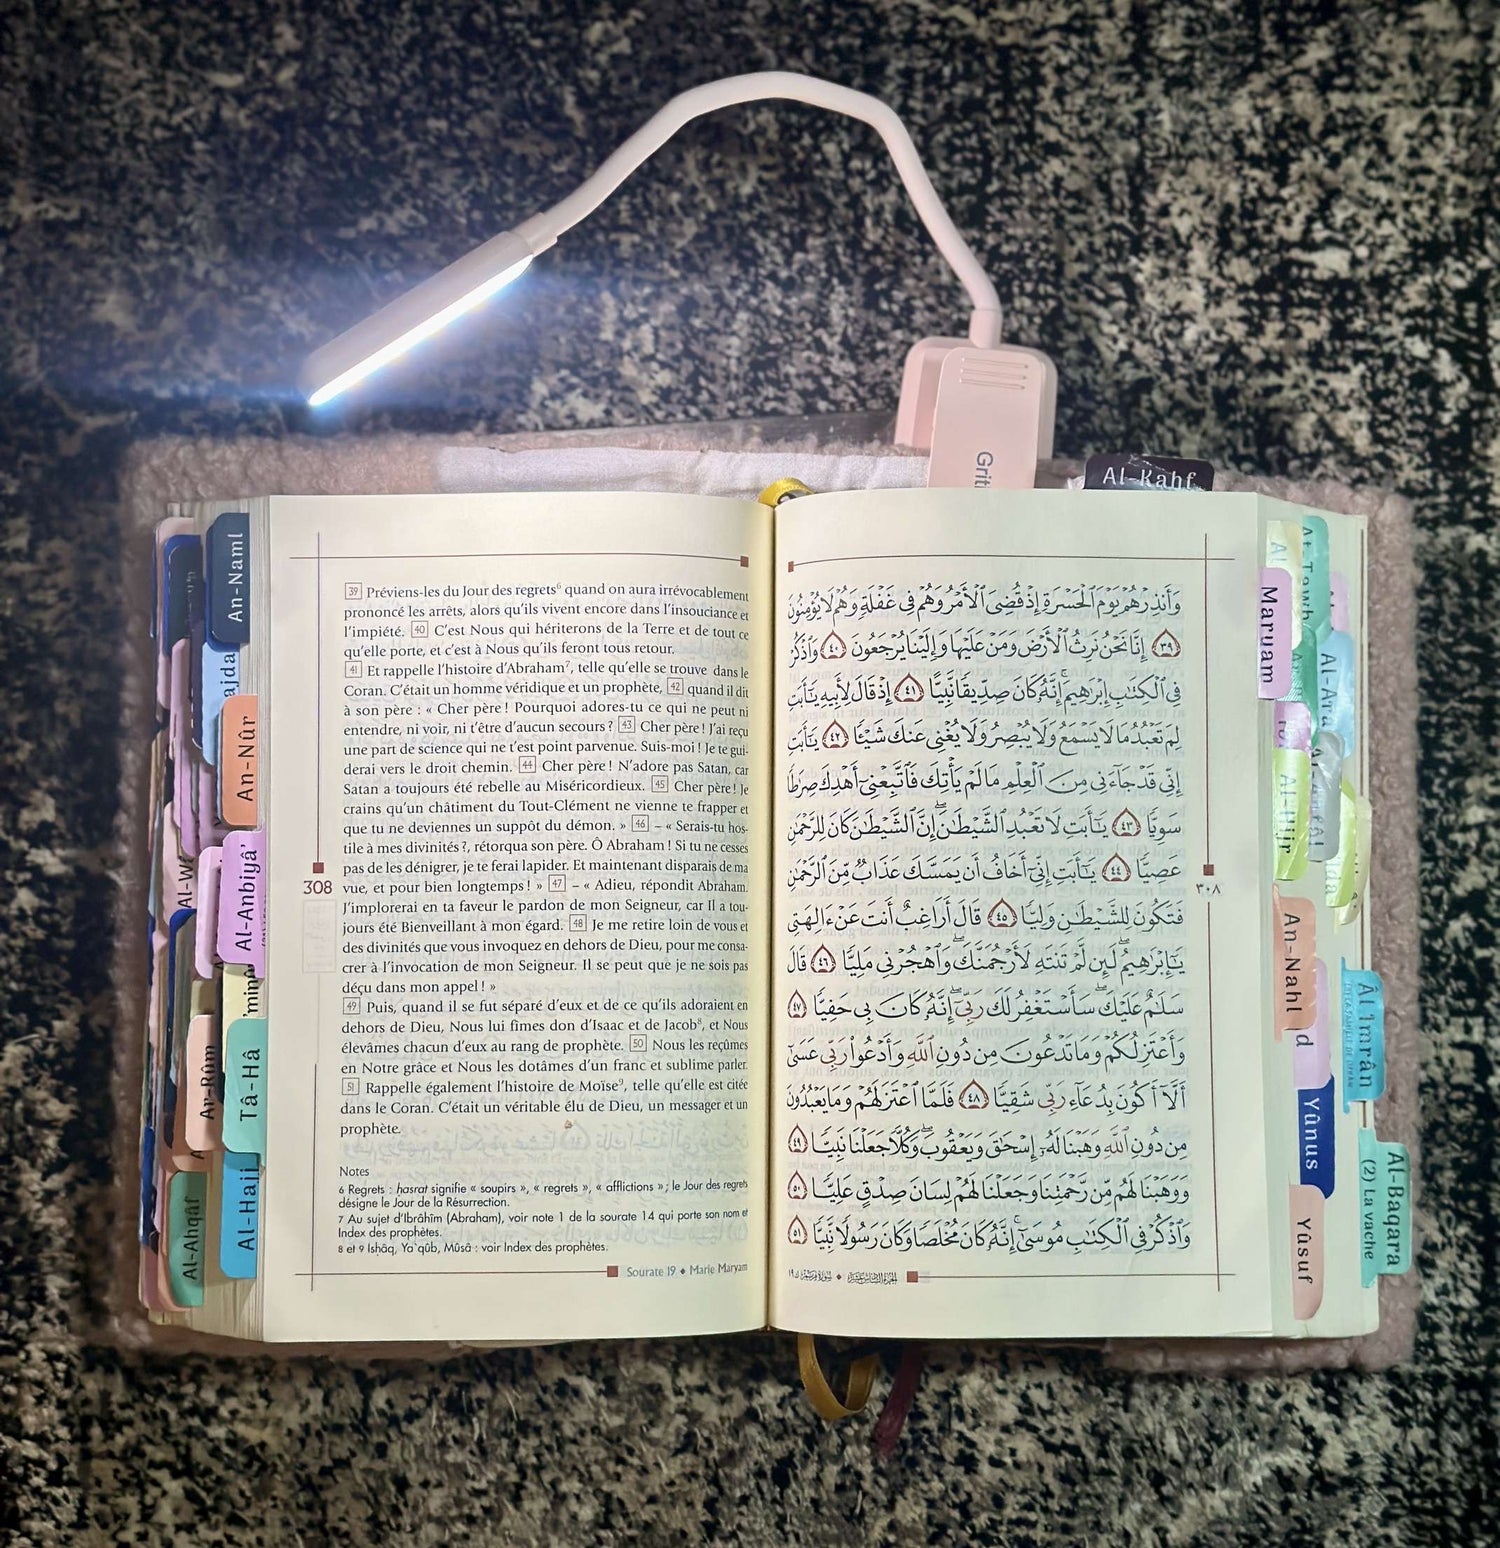 Griti
Al-Kahf
39 Préviens-les du Jour des regrets⁶ quand on aura irrévocablement
prononcé les arrêts, alors qu'ils vivent encore dans l'insouciance et
l'impiété. 40 C'est Nous qui hériterons de la Terre et de tout ce
qu'elle porte, et c'est à Nous qu'ils feront tous retour.
41 Et rappelle l'histoire d'Abraham⁷, telle qu'elle se trouve dans le
Coran. C'était un homme véridique et un prophète, 42 quand il dit
à son père : « Cher père ! Pourquoi adores-tu ce qui ne peut ni
entendre, ni voir, ni t'être d'aucun secours ? 43 Cher père ! J'ai reçu
une part de science qui ne t'est point parvenue. Suis-moi ! Je te gui-
derai vers le droit chemin. 44 Cher père ! N'adore pas Satan, car
Satan a toujours été rebelle au Miséricordieux. 45 Cher père ! Je
crains qu'un châtiment du Tout-Clément ne vienne te frapper et
que tu ne deviennes un suppôt du démon. » 46 – « Serais-tu hos-
tile à mes divinités ?, rétorqua son père. Ô Abraham ! Si tu ne cesses
pas de les dénigrer, je te ferai lapider. Et maintenant disparais de ma
vue, et pour bien longtemps ! » 47 – « Adieu, répondit Abraham.
J'implorerai en ta faveur le pardon de mon Seigneur, car Il a tou-
jours été Bienveillant à mon égard. 48 Je me retire loin de vous et
des divinités que vous invoquez en dehors de Dieu, pour me consa-
crer à l'invocation de mon Seigneur. Il se peut que je ne sois pas
déçu dans mon appel ! »
49 Puis, quand il se fut séparé d'eux et de ce qu'ils adoraient en
dehors de Dieu, Nous lui fîmes don d'Isaac et de Jacob⁸, et Nous
élevâmes chacun d'eux au rang de prophète. 50 Nous les reçûmes
en Notre grâce et Nous les dotâmes d'un franc et sublime parler.
51 Rappelle également l'histoire de Moïse⁹, telle qu'elle est citée
dans le Coran. C'était un véritable élu de Dieu, un messager et un
prophète.
308
Notes
6 Regrets : hasrat signifie « soupirs », « regrets », « afflictions » ; le Jour des regrets
désigne le Jour de la Résurrection.
7 Au sujet d'Ibrâhîm (Abraham), voir note 1 de la sourate 14 qui porte son nom et
Index des prophètes.
8 et 9 Ishâq, Ya`qûb, Mûsâ : voir Index des prophètes.
Sourate 19 ♦ Marie Maryam
وَأَنذِرْهُمْ يَوْمَ ٱلْحَسْرَةِ إِذْ قُضِىَ ٱلْأَمْرُ وَهُمْ فِى غَفْلَةٍ وَهُمْ لَا يُؤْمِنُونَ
٣٩ إِنَّا نَحْنُ نَرِثُ ٱلْأَرْضَ وَمَنْ عَلَيْهَا وَإِلَيْنَا يُرْجَعُونَ ٤٠ وَٱذْكُرْ
فِى ٱلْكِتَٰبِ إِبْرَٰهِيمَ ۚ إِنَّهُۥ كَانَ صِدِّيقًا نَّبِيًّا ٤١ إِذْ قَالَ لِأَبِيهِ يَٰٓأَبَتِ
لِمَ تَعْبُدُ مَا لَا يَسْمَعُ وَلَا يُبْصِرُ وَلَا يُغْنِى عَنكَ شَيْـًٔا ٤٢ يَٰٓأَبَتِ
إِنِّى قَدْ جَآءَنِى مِنَ ٱلْعِلْمِ مَا لَمْ يَأْتِكَ فَٱتَّبِعْنِىٓ أَهْدِكَ صِرَٰطًا
سَوِيًّا ٤٣ يَٰٓأَبَتِ لَا تَعْبُدِ ٱلشَّيْطَٰنَ ۖ إِنَّ ٱلشَّيْطَٰنَ كَانَ لِلرَّحْمَٰنِ
عَصِيًّا ٤٤ يَٰٓأَبَتِ إِنِّىٓ أَخَافُ أَن يَمَسَّكَ عَذَابٌ مِّنَ ٱلرَّحْمَٰنِ
فَتَكُونَ لِلشَّيْطَٰنِ وَلِيًّا ٤٥ قَالَ أَرَاغِبٌ أَنتَ عَنْ ءَالِهَتِى
يَٰٓإِبْرَٰهِيمُ ۖ لَئِن لَّمْ تَنتَهِ لَأَرْجُمَنَّكَ ۖ وَٱهْجُرْنِى مَلِيًّا ٤٦ قَالَ
سَلَٰمٌ عَلَيْكَ ۖ سَأَسْتَغْفِرُ لَكَ رَبِّىٓ ۖ إِنَّهُۥ كَانَ بِى حَفِيًّا ٤٧
وَأَعْتَزِلُكُمْ وَمَا تَدْعُونَ مِن دُونِ ٱللَّهِ وَأَدْعُوا۟ رَبِّى عَسَىٰٓ
أَلَّآ أَكُونَ بِدُعَآءِ رَبِّى شَقِيًّا ٤٨ فَلَمَّا ٱعْتَزَلَهُمْ وَمَا يَعْبُدُونَ
مِن دُونِ ٱللَّهِ وَهَبْنَا لَهُۥٓ إِسْحَٰقَ وَيَعْقُوبَ ۖ وَكُلًّا جَعَلْنَا نَبِيًّا ٤٩
وَوَهَبْنَا لَهُم مِّن رَّحْمَتِنَا وَجَعَلْنَا لَهُمْ لِسَانَ صِدْقٍ عَلِيًّا ٥٠
وَٱذْكُرْ فِى ٱلْكِتَٰبِ مُوسَىٰٓ ۚ إِنَّهُۥ كَانَ مُخْلَصًا وَكَانَ رَسُولًا نَّبِيًّا ٥١
٣٠٨
An-Naml
ajda
An-Nûr
Al-Anbiyâ'
Ar-Rûm
Tâ-Hâ
Al-Hajj
Al-Ahqâf
Maryam
Al-Hijr
An-Nahl
Âl 'Imrân
Yûnus
Yûsuf
Al-Baqara
(2) La vache